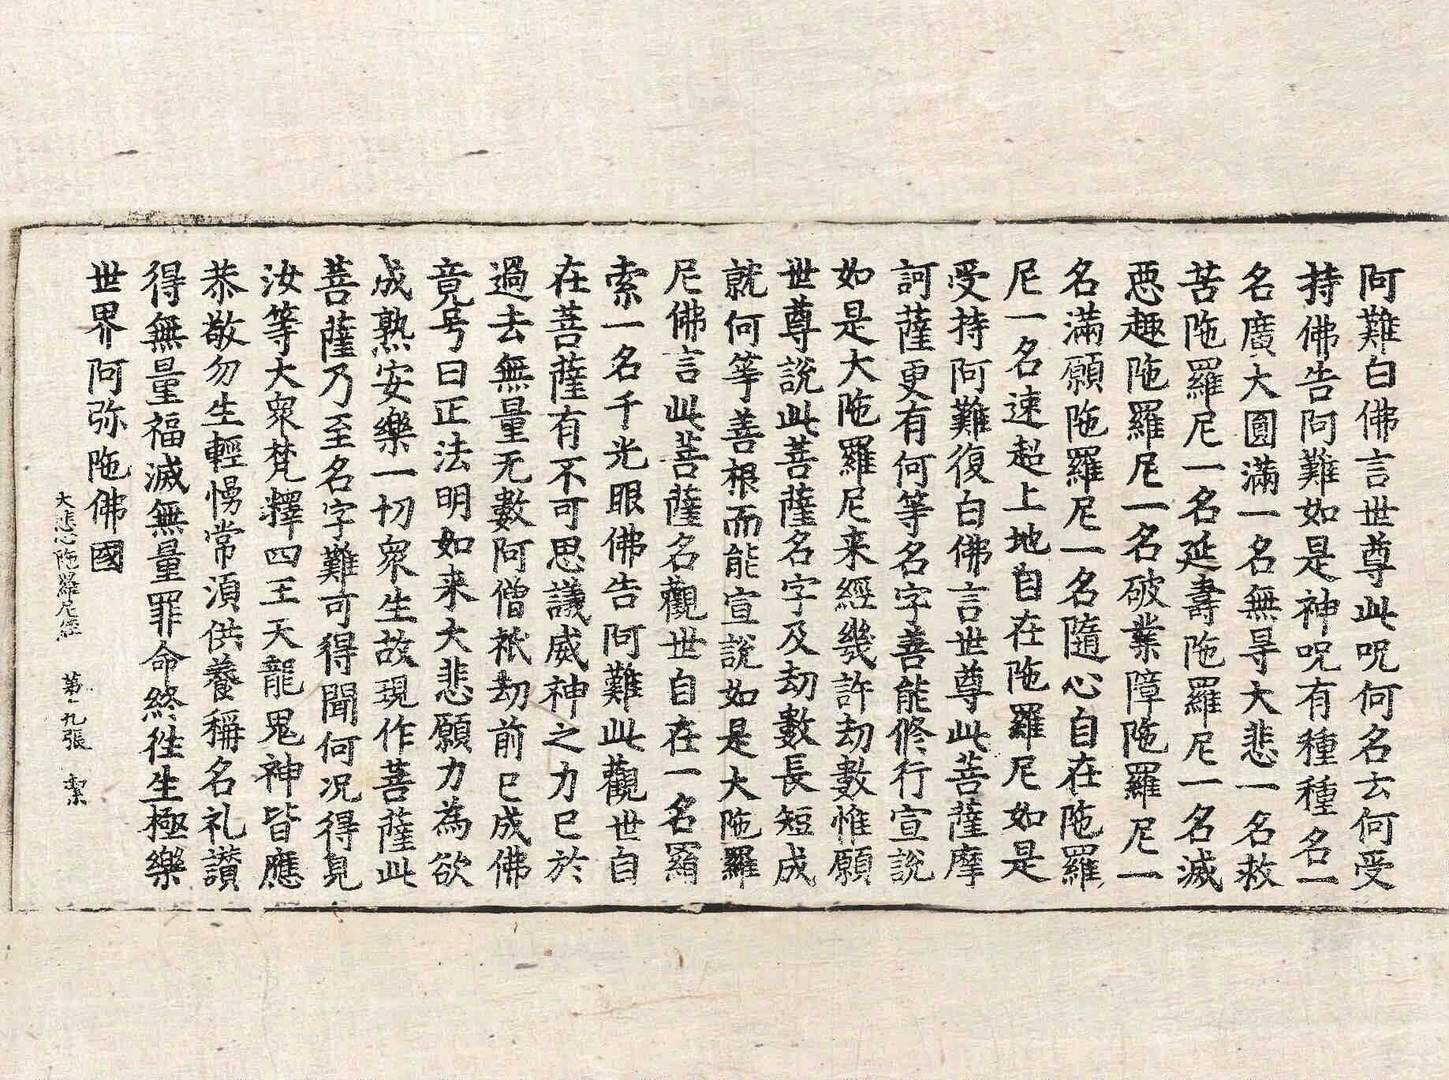 阿難白佛言世尊此呪何名去何受
持佛告阿難如是神呪有種種名一
名廣大圓滿一名無㝵大悲一名救
苦陁羅尼一名延壽陁羅尼一名滅
惡趣陁羅尼一名破業障陁羅尼一
名滿願陁羅尼一名隨心自在陁羅
尼一名速超上地自在陁羅尼如是
受持阿難復白佛言世尊此菩薩摩
訶薩更有何等名字善能修行宣說
如是大陁羅尼来經幾許劫數惟願
世尊說此菩薩名字及劫數長短成
就何等善根而能宣說如是大陁羅
尼佛言此菩薩名觀世自在一名羂
索一名千光眼佛告阿難此觀世自
在菩薩有不可思議威神之力已於
過去無量无數阿僧祇劫前已成佛
竟号曰正法明如来大悲願力為欲
成熟安樂一切衆生故現作菩薩此
菩薩乃至名字難可得聞何况得見
汝等大衆梵釋四王天龍鬼神皆應
恭敬勿生輕慢常湏供養稱名礼讃
得無量福滅無量罪命終徃生極樂
世界阿弥陁佛國
大悲心陁羅尼經 第九張 㓗